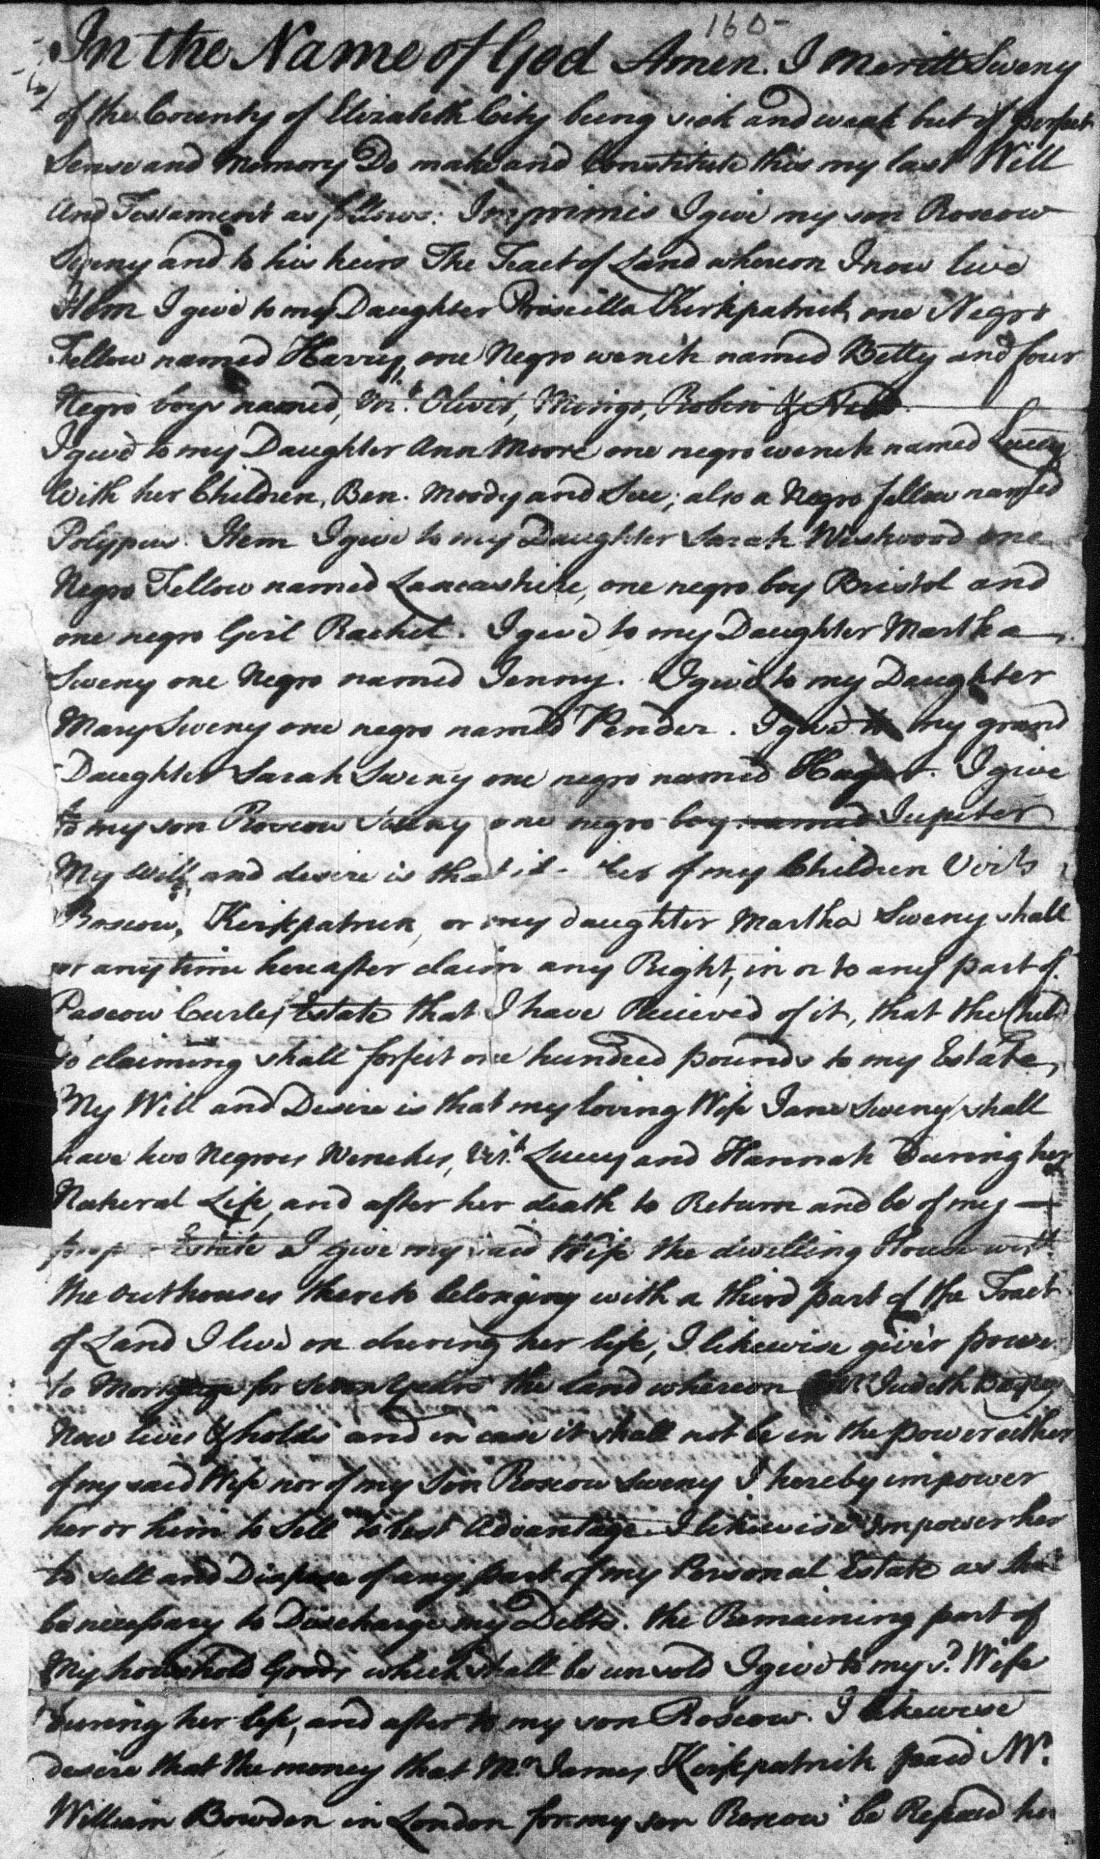 160-
In the Name of God Amen. I Meritt Sweny
of the County of Elizabeth City being sick and weak but of perfect
Sense and Memory Do make and Constitute this my last Will
And Testament as follows: Imprimis I give my son Roscow
Sweny and to his heirs The Tract of Land whereon I now live
Item I give to my Daughter Priscilla Kirkpatrick one Negro
Fellow named Harry, one Negro wench named Betty and four
Negro boys named, Vizt. Oliver, Mingo, Robin & Ned
I give to my Daughter Ann Moore one negro wench named Lucey
With her Children, Ben. Moody and Sue; also a Negro fellow named
Polypus. Item I give to my Daughter Sarah Westwood one
Negro Fellow named Lancashire, one negro boy Bristol and
one negro Girl Rachel. I give to my Daughter Martha
Sweny one Negro named Jenny. I give to my Daughter
Mary Sweny one negro named Pender. I give to my grand
Daughter Sarah Sweny one negro named Hagar. I give
to my son Roscow Sweny one negro boy named Jupiter
My Will and desire is that if of my Children Vizt
Roscow, Kirkpatrick, or my daughter Martha Sweny shall
at any time hereafter claim any Right, in or to any part of
Pascow Curles Estate that I have Recieved of it, that the Child
so claiming shall forfeit one hundred pounds to my Estate,
My Will and Desire is that my loving Wife Jane Sweny shall
have two Negroes Wenches, Vizt. Lucey and Hannah During her
Natural Life, and after her death to Return and be of my
Estate I give my said Wife the dwelling House with
the outhouses thereto belonging with a third part of the Tract
of Land I live on during her life, I likewise give'r power
to Mortgage for seven Years the land whereon Judith
Now lives & holds and in case it shall not be in the power either
of my said Wife nor of my Son Roscow Sweny I hereby impower
her or him to Sell to best Advantage I likewise Impower her
to sell and Dispose of any part of my Personal Estate as
be necessary to Discharge my Debts. the Remaining part of
My household Goods which shall be unsold I give to my sd. Wife
during her life, and after to my son Roscow. I likewise
desire that the money that Mr James Kirkpatrick paid Mr.
William Bowden in London for my son Roscow be Repaid her